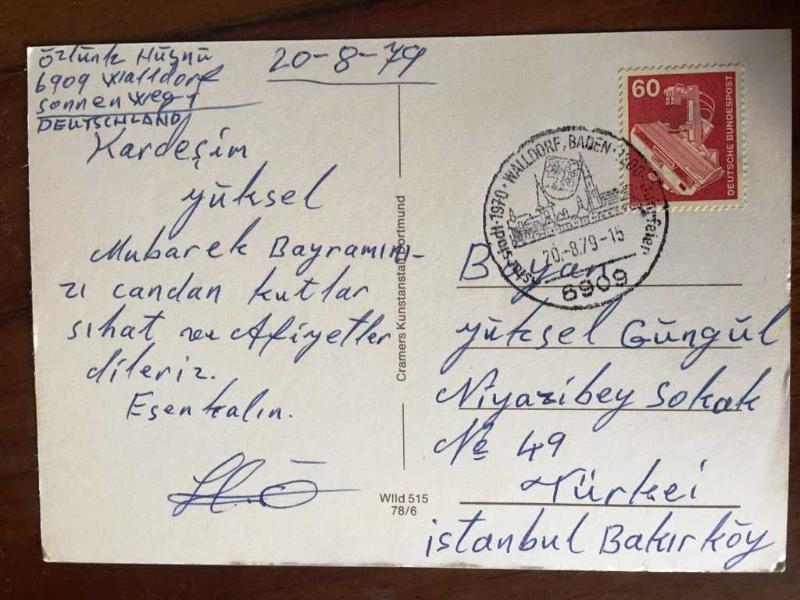 Öztürk Hüsnü
6909 Walldorf
Sonnenweg 1
DEUTSCHLAND
20-8-79
Kardeşim
yüksel
Mubarek Bayramını-
zı candan kutlar
sıhat ve Afiyetler
dileriz.
Esenkalın.
H.Ö
Cramers Kunstanstalt Dortmund
Wlld 515
78/6
60
DEUTSCHE BUNDESPOST
1970 · WALLDORF, BADEN · 1200-Jahrfeier
20.-8.79-15
6909
Bayan
yüksel Güngül
Niyazibey Sokak
No 49
Türkei
istanbul Bakırköy